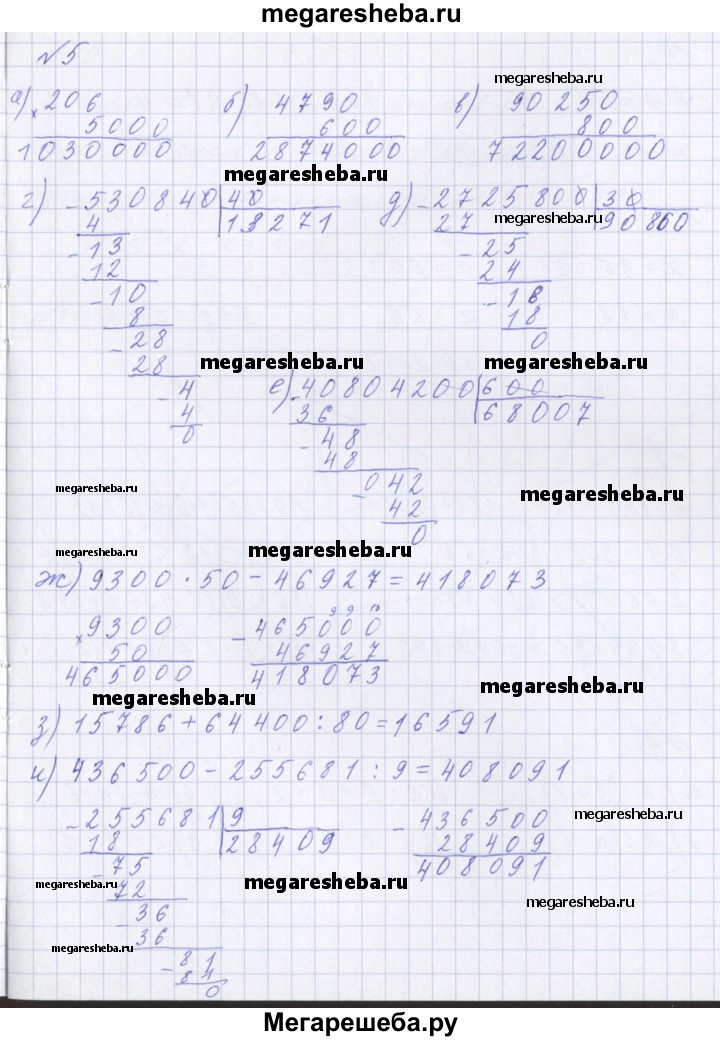 megaresheba.ru
№5
megaresheba.ru
а) × 206 б) 4790 в) 90250
5000 600 800
1030000 2874000 72200000
megaresheba.ru
г) - 530840 | 40 д) - 2725800 | 30
4 13271 27 90860
megaresheba.ru
- 13 - 25
12 24
- 10 - 18
8 18
- 28 0
28
megaresheba.ru megaresheba.ru
- 4 е) - 40804200 | 600
4 36 68007
0 - 48
48
megaresheba.ru - 042 megaresheba.ru
42
0
megaresheba.ru megaresheba.ru
ж) 9300 · 50 - 46927 = 418073
9 9 10
× 9300 - 465000
50 46927
465000 418073
megaresheba.ru megaresheba.ru
з) 15786 + 64400 : 80 = 16591
и) 436500 - 255681 : 9 = 408091
- 255681 | 9 - 436500 megaresheba.ru
18 28409 28409
- 75 408091
megaresheba.ru megaresheba.ru
72
- 36 megaresheba.ru
36
megaresheba.ru
- 81
81
0
Мегарешеба.ру